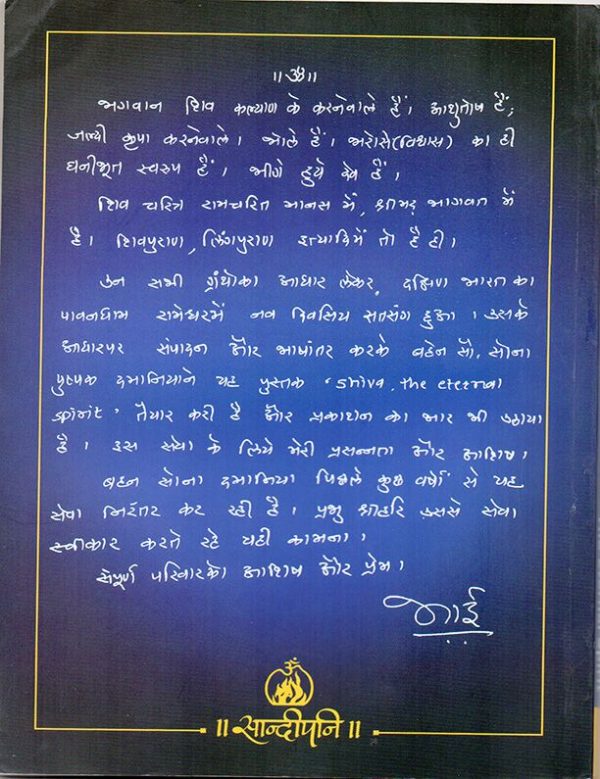 ॥ ॐ ॥
भगवान शिव कल्याण के करनेवाले हैं। आशुतोष हैं;
जल्दी कृपा करनेवाले। भोले हैं। भरोसे(विश्वास) का ही
घनीभूत स्वरुप हैं। भीगे हुये देव हैं।
शिव चरित्र रामचरित मानस में, श्रीमद् भागवत में
है। शिवपुराण, लिंगपुराण इत्यादिमें तो है ही।
उन सभी ग्रंथोका आधार लेकर, दक्षिण भारत का
पावनधाम रामेश्वरमें नव दिवसिय सतसंग हुआ। उसके
आधारपर संपादन और भाषांतर करके बहेन सौ. सोना
पुष्पक दमानियाने यह पुस्तक 'shiva, the eternal
spirit' तैयार करी है और प्रकाशन का भार भी उठाया
है। इस सेवा के लिये मेरी प्रसन्नता और आशिष।
बहन सोना दमानिया पिछले कुछ वर्षों से यह
सेवा निरंतर कर रही है। प्रभु श्रीहरि उससे सेवा
स्वीकार करते रहे यही कामना।
संपूर्ण परिवारको आशिष और प्रेम।
भाई
॥ सान्दीपनि ॥